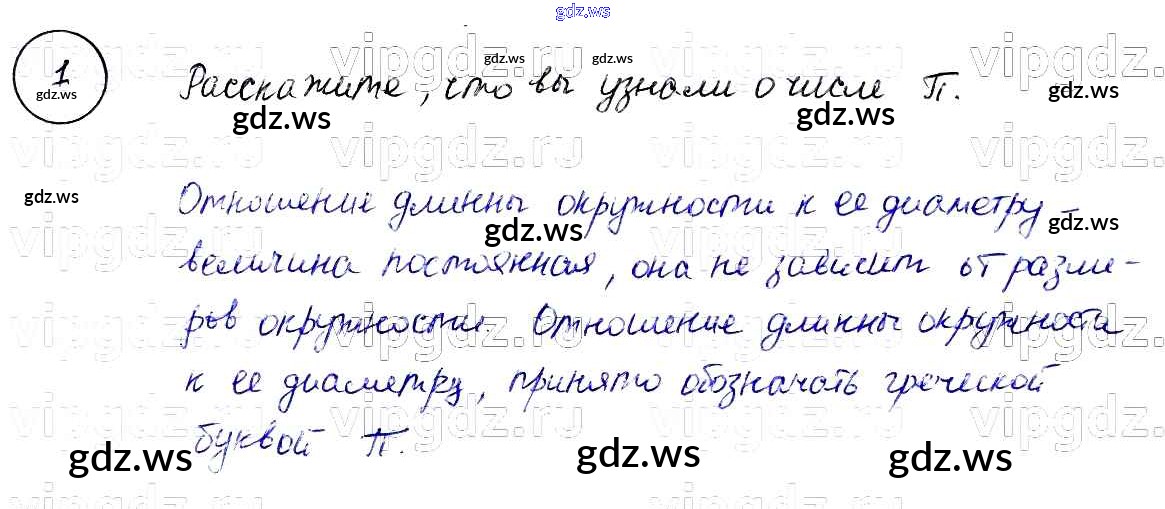 gdz.ws
1
Расскажите, что вы узнали о числе П.
Отношение длинны окружности к ее диаметру –
величина постоянная, она не зависит от разме-
ров окружности. Отношение длинны окружности
к ее диаметру, принято обозначать греческой
буквой П.
gdz.ws
vipgdz.ru